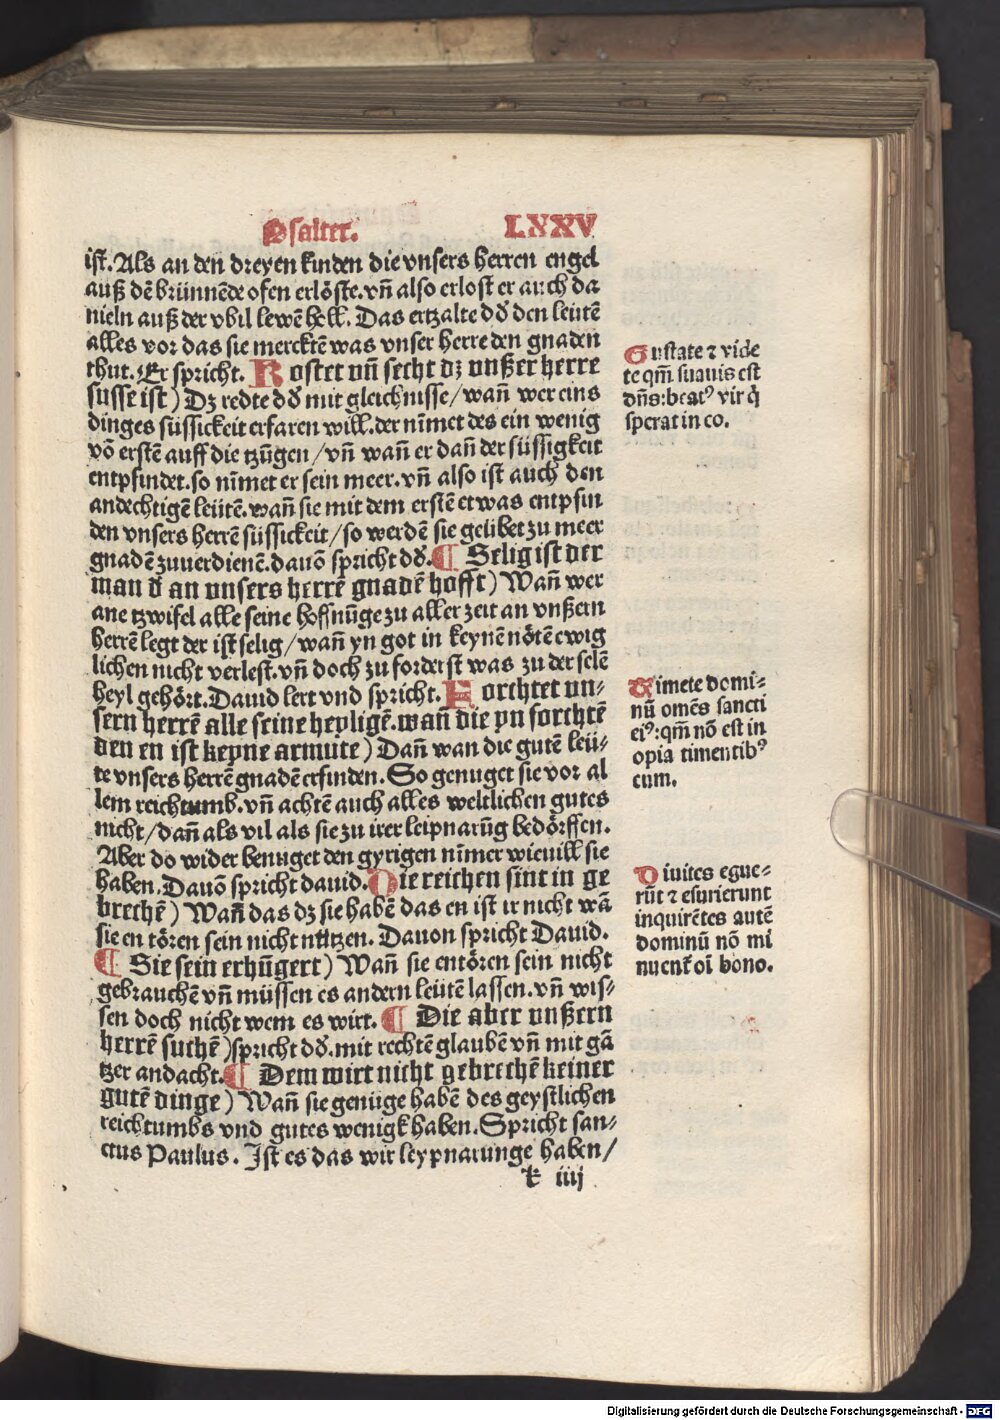 Psalter. LXXV
ist. Als an den dreyen kinden die vnsers herren engel
auß dē brünnēdē ofen erlöste. vn̄ also erlost er auch da
nieln auß der vbil lewē hell. Das ertzalte dđ den leütē
alles vor das sie mercktē was vnser herre den gnaden
thut. Er spricht. Kostet vn̄ secht dz vnßer herre
susse ist) Dz redte dđ mit gleichnisse/ wan̄ wer eins
dinges süssickeit erfaren will. der nīmet des ein wenig
vō erstē auff die tzūgen/ vn̄ wan̄ er dan̄ der süssigkeit
entpfindet. so nīmet er sein meer. vn̄ also ist auch den
andechtigē leütē. wan̄ sie mit dem erstē etwas entpfin
den vnsers herrē süssickeit/ so werdē sie geübet zu meer
gnadē zuuerdienē. dauō spricht dđ. ¶ Selig ist der
man đ an vnsers herrē gnadē hofft) Wan̄ wer
ane tzwifel alle seine hoffnūge zu aller zeit an vnßern
herrē legt der ist selig/ wan̄ yn got in keynē nötē ewig
lichen nicht verlest. vn̄ doch zu forderst was zu der selē
heyl gehört. Dauid lert vnd spricht. Forchtet vn⸗
sern herrē alle seine heyligē. wan̄ die yn forchtē
den en ist keyne armute) Dan̄ wan die gutē leü⸗
te vnsers herrē gnadē erfinden. So genuget sie vor al
lem reichtumb. vn̄ achtē auch alles weltlichen gutes
nicht/ dan̄ als vil als sie zu irer leipnarūg bedörffen.
Aber do wider benuget den gyrigen nīmer wieuill sie
haben. Dauō spricht dauid. Die reichen sint in ge
brechē) Wan̄ das dz sie habē das en ist ir nicht wā
sie en tören sein nicht nützen. Dauon spricht Dauid.
¶ Sie sein erhūgert) Wan̄ sie entören sein nicht
gebrauchē vn̄ müssen es andern leütē lassen. vn̄ wis⸗
sen doch nicht wem es wirt. ¶ Die aber vnßern
herrē suchē) spricht dđ. mit rechtē glaubē vn̄ mit gā
tzer andacht. ¶ Dem wirt nicht gebrechē keiner
gutē dinge) Wan̄ sie genüge habē des geystlichen
reichtumbs vnd gutes wenigk haben. Spricht san⸗
ctus Paulus. Ist es das wir leypnarunge haben/
k iiij
Gustate ⁊ vide
te qm̄ suauis est
dn̄s: beatꝰ vir q̇
sperat in eo.
Timete domi⸗
nū omēs sancti
eiꝰ: qm̄ nō est in
opia timentibꝰ
eum.
Diuites egue⸗
rūt ⁊ esurierunt
inquirētes autē
dominū nō mi
nuent᷑ oī bono.
Digitalisierung gefördert durch die Deutsche Forschungsgemeinschaft - DFG